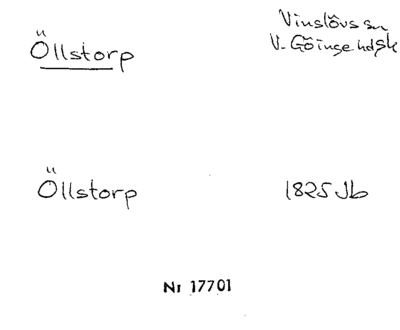 Öllstorp
Vinslövs sn
V. Göinge hd Sk
Öllstorp
1825 Jb
Nr 17701